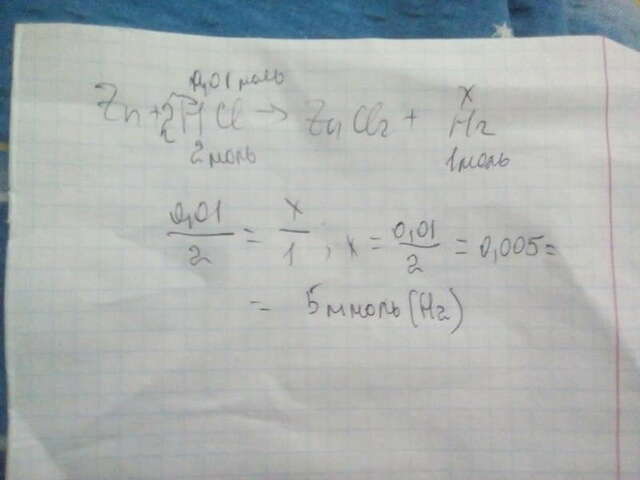 0,01 моль x
Zn + 2HCl → ZnCl2 + H2
2 моль 1 моль
0,01/2 = x/1 ; x = 0,01/2 = 0,005 =
= 5 ммоль (H2)